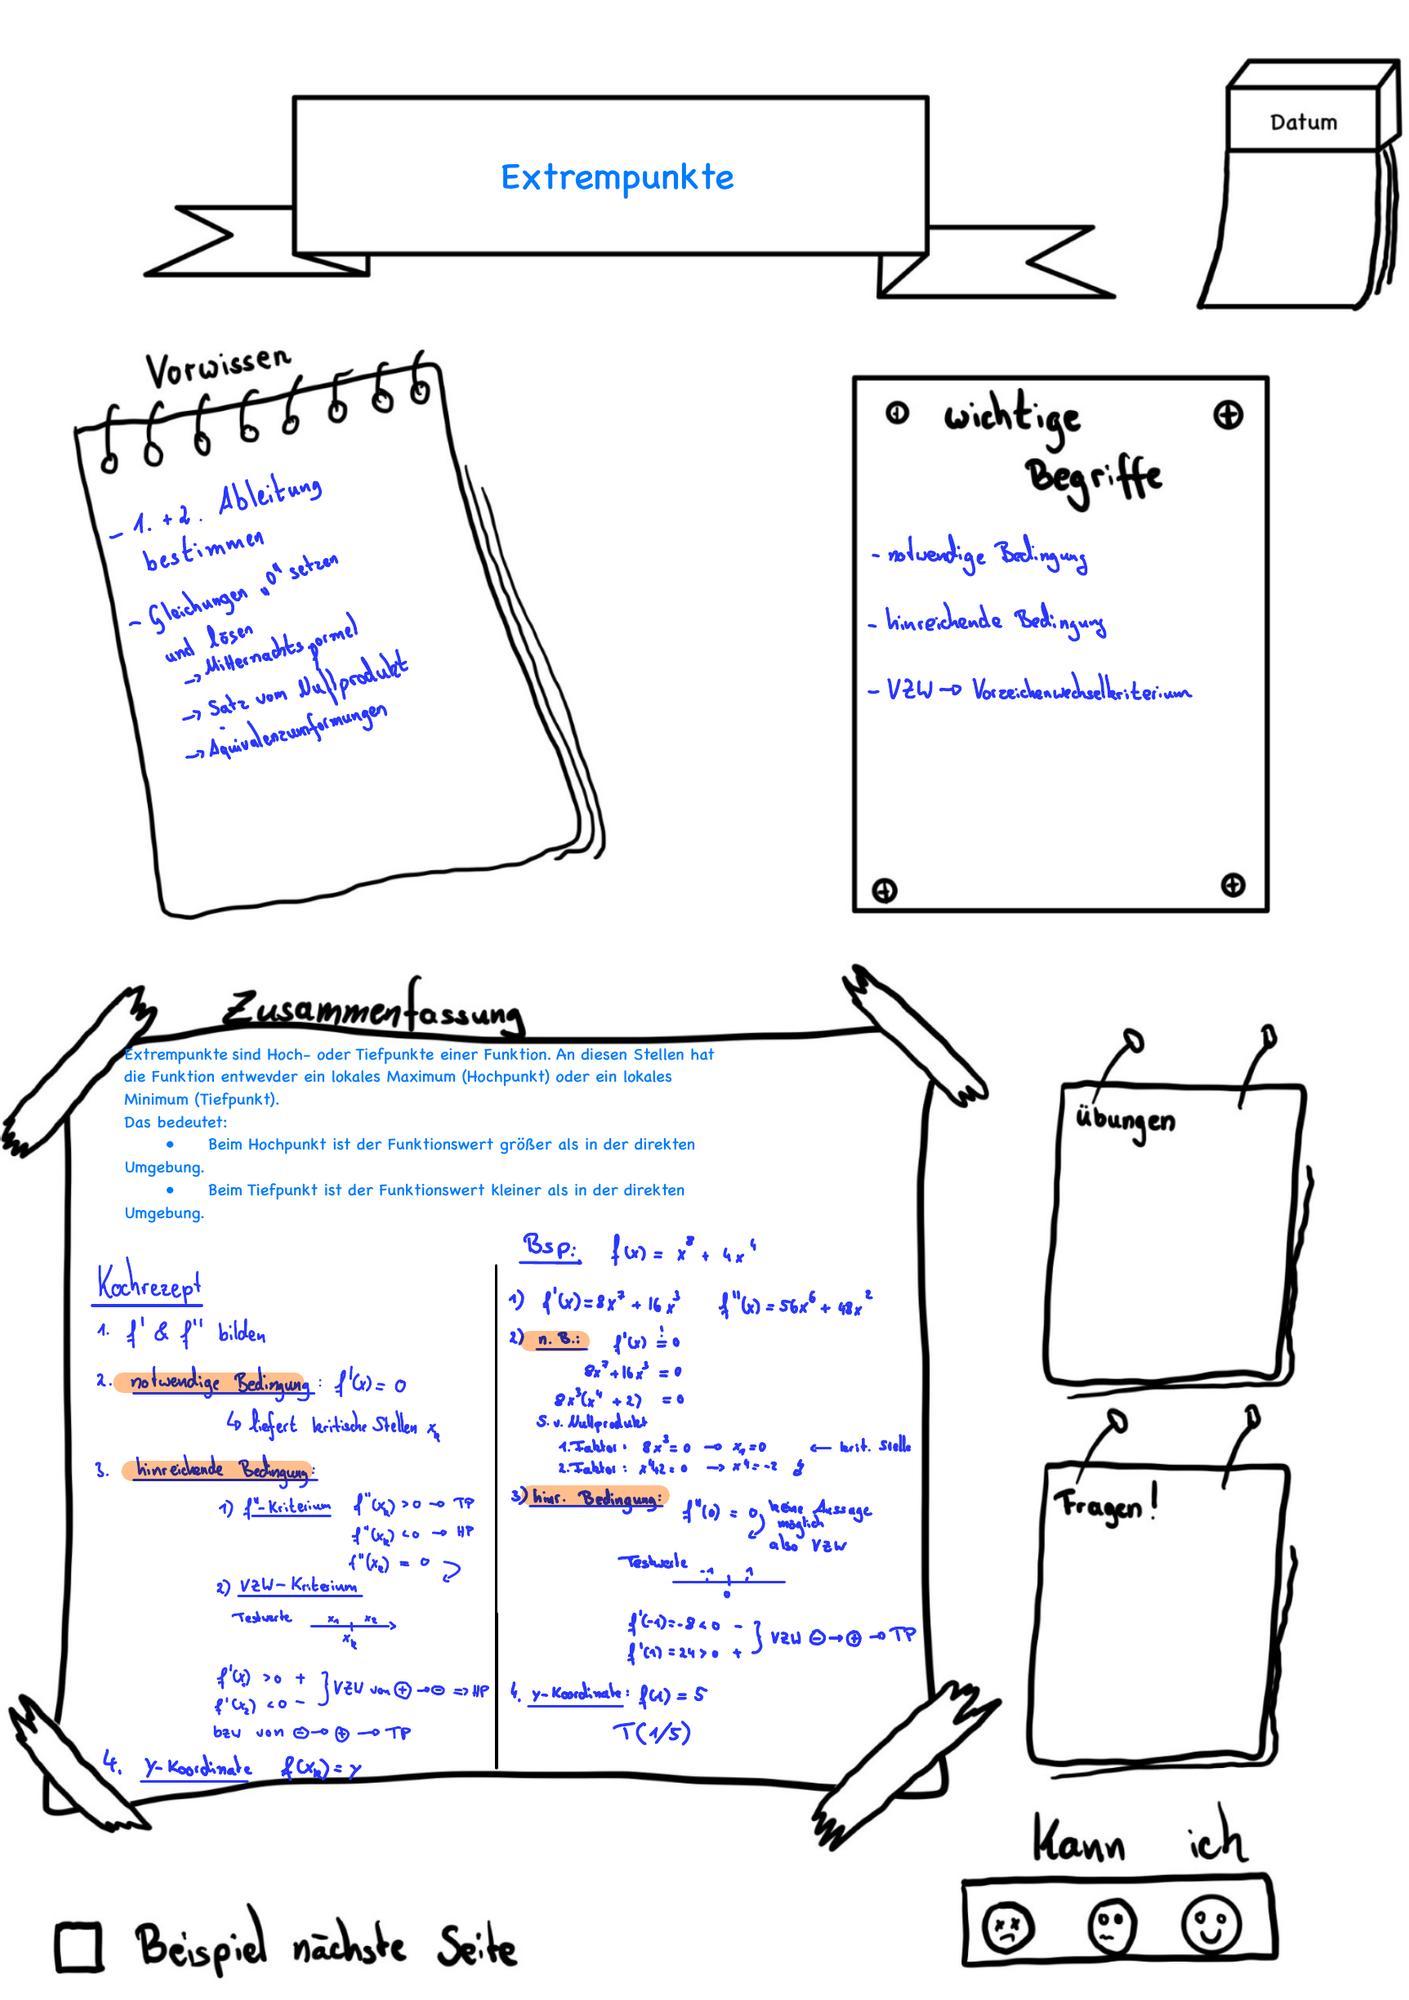 Extrempunkte
Datum
Vorwissen
- 1. + 2. Ableitung
bestimmen
- Gleichungen „0" setzen
und lösen
→ Mitternachtsformel
→ Satz vom Nullprodukt
→ Äquivalenzumformungen
wichtige
Begriffe
- notwendige Bedingung
- hinreichende Bedingung
- VZW → Vorzeichenwechselkriterium
Zusammenfassung
Extrempunkte sind Hoch- oder Tiefpunkte einer Funktion. An diesen Stellen hat
die Funktion entwevder ein lokales Maximum (Hochpunkt) oder ein lokales
Minimum (Tiefpunkt).
Das bedeutet:
• Beim Hochpunkt ist der Funktionswert größer als in der direkten
Umgebung.
• Beim Tiefpunkt ist der Funktionswert kleiner als in der direkten
Umgebung.
Kochrezept
1. f' & f'' bilden
2. notwendige Bedingung: f'(x) = 0
↳ liefert kritische Stellen xₖ
3. hinreichende Bedingung:
1) f''-Kriterium f''(xₖ) > 0 → TP
f''(xₖ) < 0 → HP
f''(xₖ) = 0
2) VZW-Kriterium
Testwerte x₁ x₂
xₖ
f'(x₁) > 0 +
f'(x₂) < 0 - } VZW von ⊕ → ⊖ => HP
bzw von ⊖ → ⊕ → TP
4. y-Koordinate f(xₖ) = y
Bsp: f(x) = x⁸ + 4x⁴
1) f'(x) = 8x⁷ + 16x³ f''(x) = 56x⁶ + 48x²
2) n. B.: f'(x) != 0
8x⁷ + 16x³ = 0
8x³(x⁴ + 2) = 0
S. v. Nullprodukt
1. Faktor: 8x³ = 0 → x₁ = 0 ← krit. Stelle
2. Faktor: x⁴+2 = 0 → x⁴ = -2 ↯
3) hinr. Bedingung: f''(0) = 0 keine Aussage
möglich
also VZW
Testwerte -1 1
0
f'(-1) = -8 < 0 -
f'(1) = 24 > 0 + } VZW ⊖ → ⊕ → TP
4. y-Koordinate: f(1) = 5
T(1/5)
Übungen
Fragen!
Kann ich
Beispiel nächste Seite